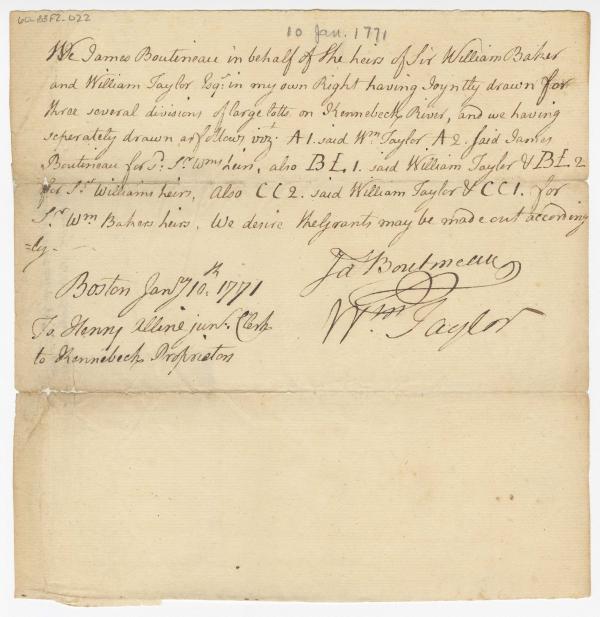 60-B3F2-022
10 Jan. 1771
We James Boutineau in behalf of the heirs of Sir William Baker
and William Taylor Esqr. in my own Right having Joyntly drawn for
three several divisions of large lotts on Kennebeck River, and we having
seperately drawn as follows vizt. A1. said Wm Taylor A2. said James
Boutineau for Sd. Sr. Wms heirs, also BL1. said William Taylor & BL2
for Sr. Williams heirs, Also CC2. said William Taylor & CC1. for
Sr. Wm Bakers heirs, We desire the Grants may be made out according
=ly.
Jas Boutineau
Boston Jany 10th. 1771
Wm. Taylor
To Henry Alline junr. Clerk
to Kennebeck Proprietors